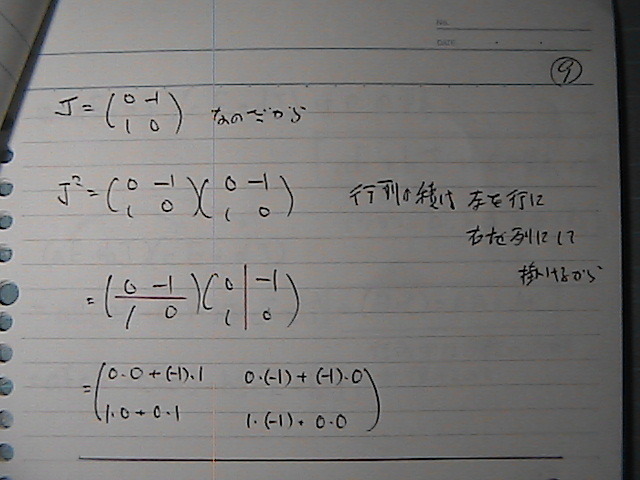 No.
DATE
9
J = (0 -1
1 0) なのだから
J² = (0 -1
1 0)(0 -1
1 0) 行列の積は 左を行に
右を列にして
掛けるから
= (0 -1
1 0)(0 -1
1 0)
= (0·0+(-1)·1 0·(-1)+(-1)·0
1·0+0·1 1·(-1)+0·0)